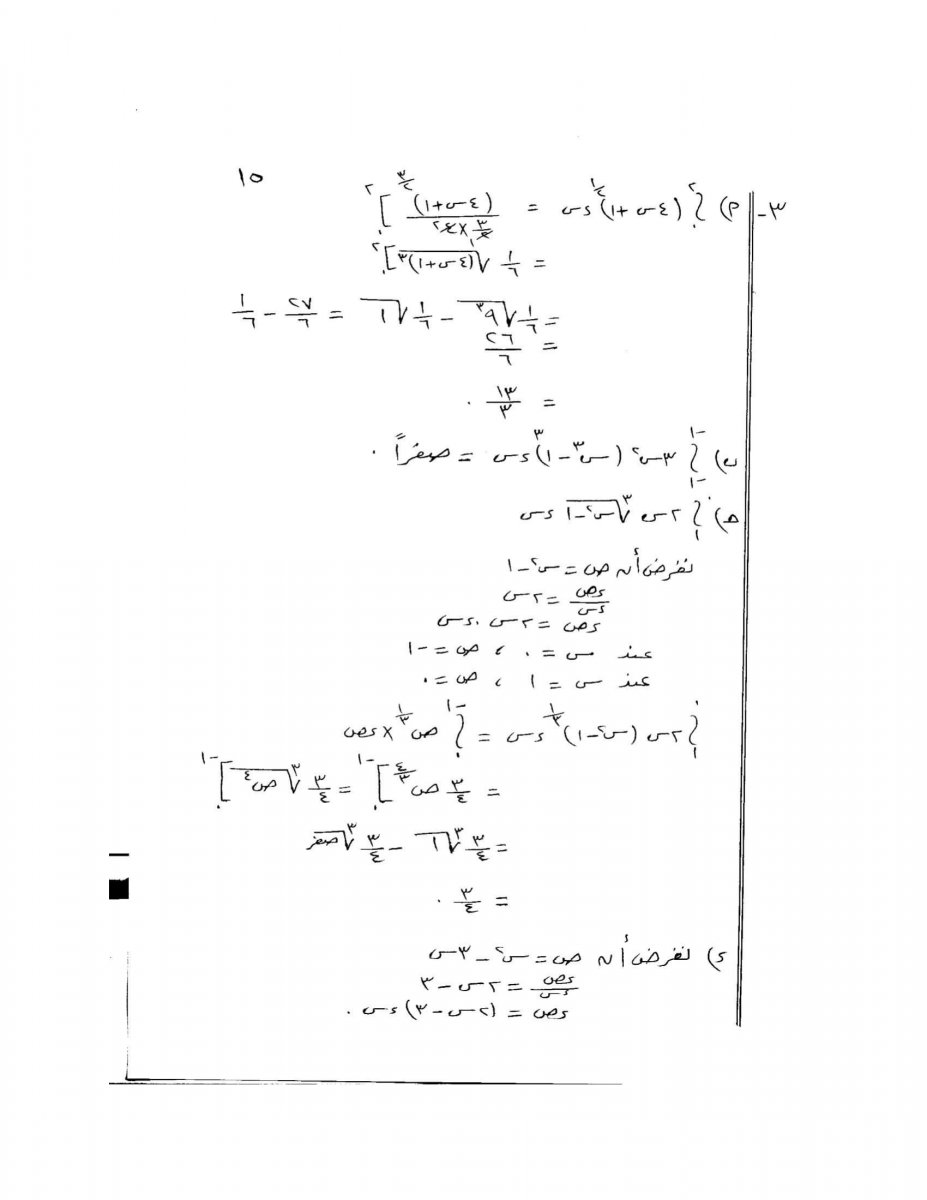 ١٥
٣- م) ∫₀² (٤س + ١)^(١/٢) ءس = [(٤س + ١)^(٣/٢) / (٣/٢ × ٤)]₀²
= ١/٦ √(٤س + ١)^٣ ]₀²
= ١/٦ √٩^٣ - ١/٦ √١ = ٢٧/٦ - ١/٦
= ٢٦/٦
= ١٣/٣ .
ب) ∫₋₁⁻¹ ٣س^٢ (س^٣ - ١)^٣ ءس = صفراً .
هـ) ∫₁⁰ ٢س ∛(س^٢ - ١) ءس
نفرض أن ص = س^٢ - ١
ءص/ءس = ٢س
ءص = ٢س . ءس
عند س = ٠ ، ص = -١
عند س = ١ ، ص = ٠
∫₁⁰ ٢س (س^٢ - ١)^(١/٣) ءس = ∫₀⁻¹ ص^(١/٣) × ءص
= ٣/٤ ص^(٤/٣) ]₀⁻¹ = ٣/٤ ∛ص^٤ ]₀⁻¹
= ٣/٤ ∛١ - ٣/٤ ∛صفر
= ٣/٤ .
ء) نفرض أن ص = س^٢ - ٣س
ءص/ءس = ٢س - ٣
ءص = (٢س - ٣) ءس .